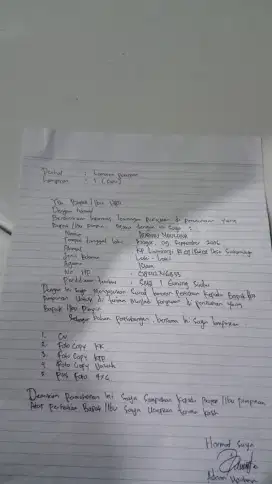 Perihal : Lamaran pekerjaan
Lampiran : 1 (satu)
Yth Bapak / Ibu HRD
Dengan hormat
Berdasarkan informasi lowongan pekerjaan di perusahaan yang
Bapak / Ibu Pimpin. Saya
Nama :
Tempat tanggal lahir : Bogor, 09 September
Alamat : KP
Jenis kelamin : Laki - Laki
Agama : Islam
No HP :
Pendidikan terakhir : SMP 1 Gunung
Dengan ini Saya mengajukan Surat lamaran pekerjaan kepada Bapak/Ibu
Pimpinan Untuk di terima menjadi karyawan di perusahaan yang
Bapak / Ibu Pimpin
Sebagai bahan pertimbangan bersama ini Saya lampirkan
1. CV
2. Foto Copy KK
3. Foto Copy KTP
4. Foto Copy Ijazah
5. Pas Foto 4x6
Demikian permohonan ini Saya Sampaikan kepada Bapak / Ibu pimpinan
Atas perhatian Bapak / Ibu Saya Ucapkan terima kasih
Hormat Saya